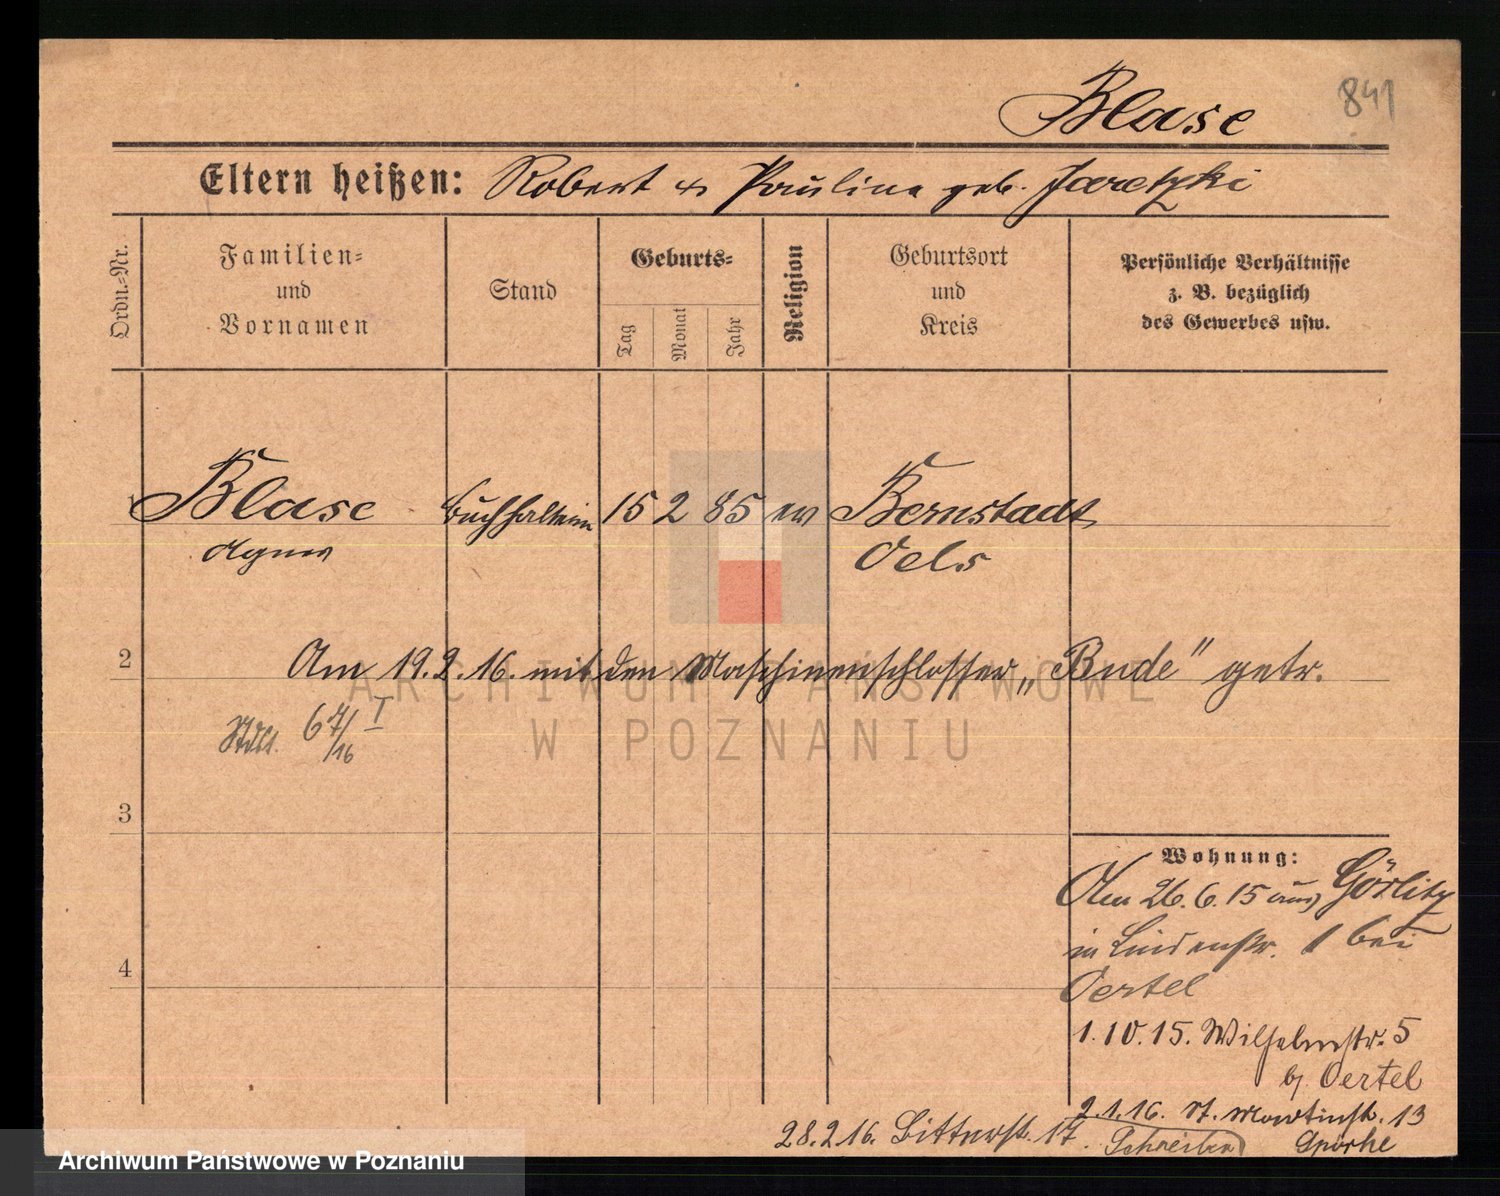 Blase
841
Eltern heißen: Robert & Pauline geb. Jaretzki
Ordn.-Nr.
Familien-
und
Vornamen
Stand
Geburts-
Tag
Monat
Jahr
Religion
Geburtsort
und
Kreis
Persönliche Verhältnisse
z. B. bezüglich
des Gewerbes usw.
Blase Buchhalterin 15 2 85 ev Bernstadt
Agnes Oels
2
Am 19.2.16. mit den Maschinenschlosser „Bude" getr.
67/16 I
3
Wohnung:
Am 26.6.15 aus Görlitz
in Lindenstr. 1 bei
Oertel
4
1.10.15. Wilhelmstr. 5
b/ Oertel
2.1.16. St. Martinstr. 13
Sporke
28.2.16. Bitterstr. 17. Schreiber
ARCHIWUM PAŃSTWOWE
W POZNANIU
Archiwum Państwowe w Poznaniu